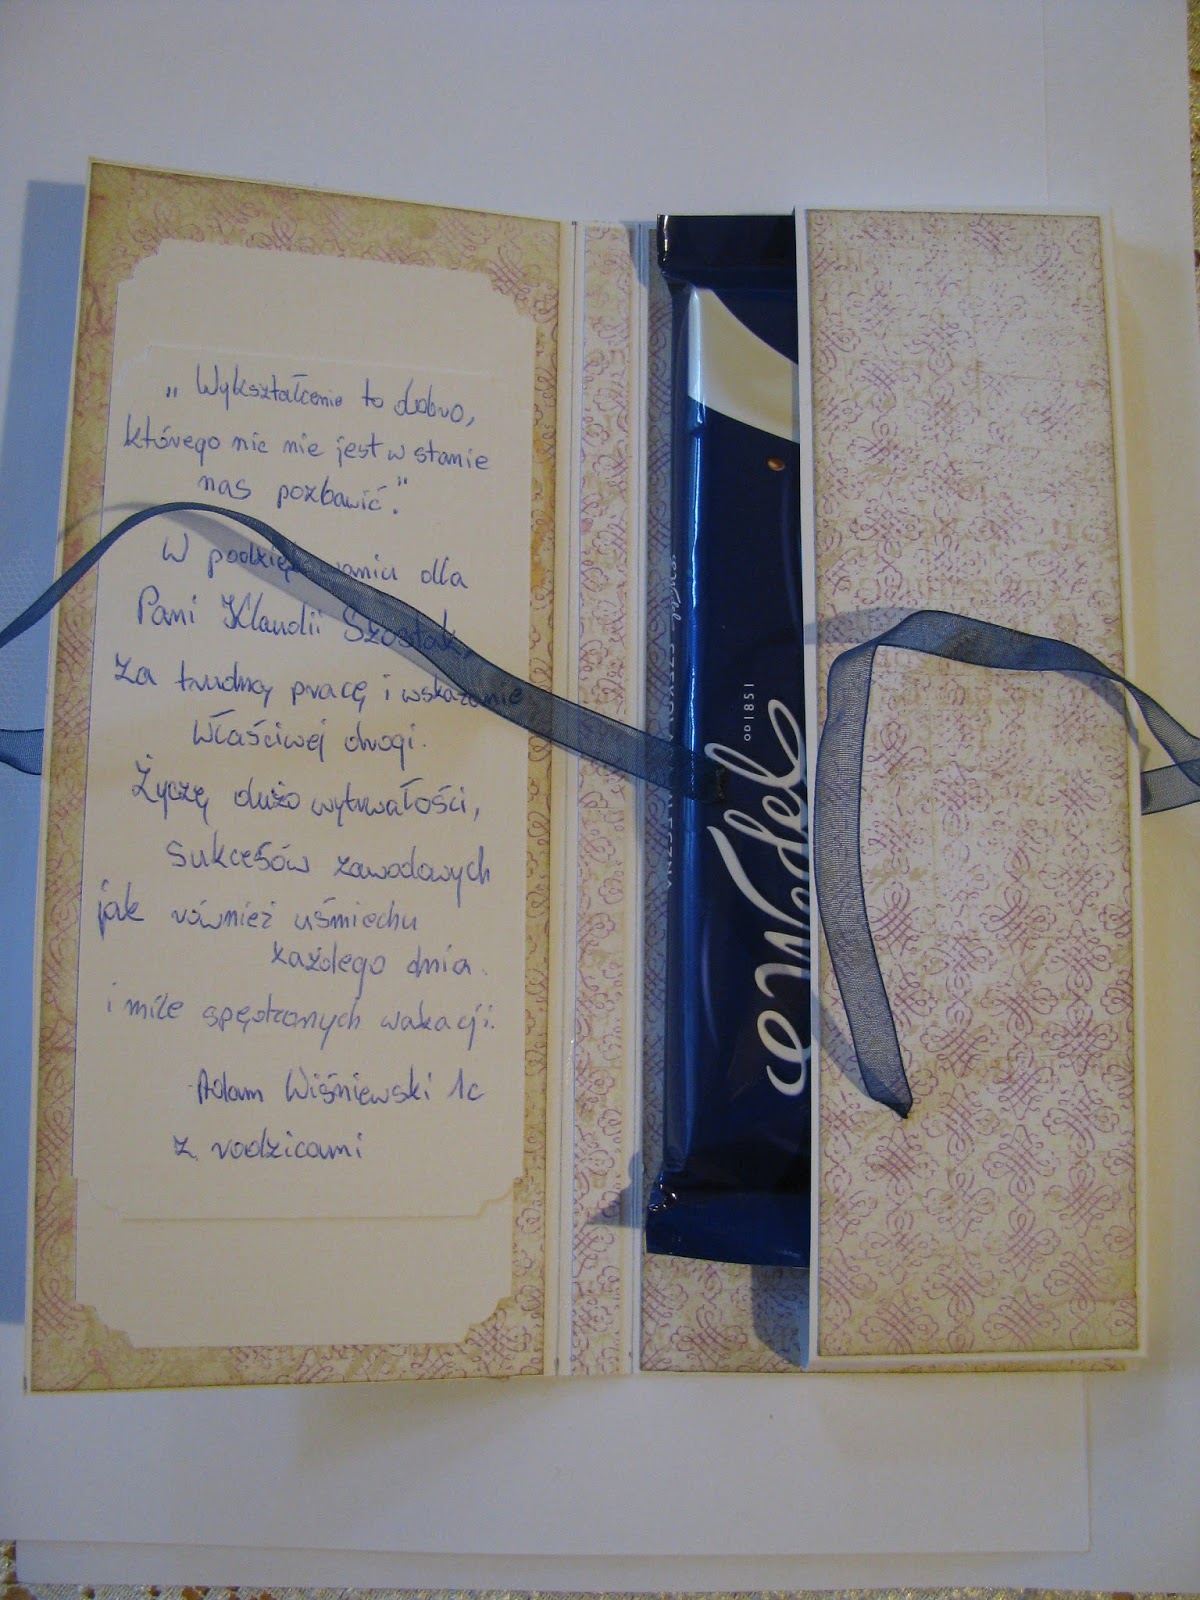 „Wykształcenie to dobro,
którego nic nie jest w stanie
nas pozbawić."
W podziękowaniu dla
Pani Klaudii Szostak,
za trudną pracę i wskazanie
właściwej drogi.
Życzę dużo wytrwałości,
sukcesów zawodowych
jak również uśmiechu
każdego dnia
i mile spędzonych wakacji.
Adam Wiśniewski 1c
z rodzicami
OD 1851
E.Wedel